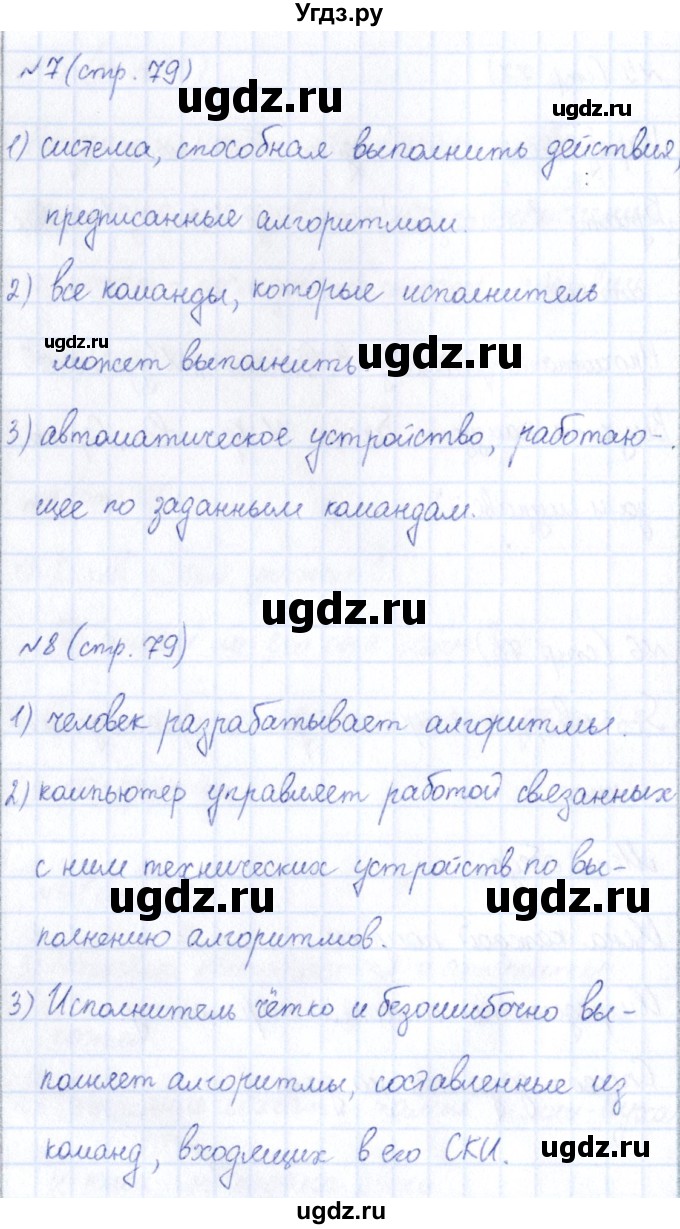 Угдз.ру
№7 (стр. 79)
ugdz.ru
ugdz.ru
1) система, способная выполнить действия,
предписанные алгоритмом.
2) все команды, которые исполнитель
ugdz.ru
может выполнить.
ugdz.ru
3) автоматическое устройство, работаю-
щее по заданным командам.
ugdz.ru
№8 (стр. 79)
1) человек разрабатывает алгоритмы.
2) компьютер управляет работой связанных
с ним технических устройств по вы-
ugdz.ru
ugdz.ru
полнению алгоритмов.
3) Исполнитель чётко и безошибочно вы-
полняет алгоритмы, составленные из
команд, входящих в его СКИ.
ugdz.ru
ugdz.ru